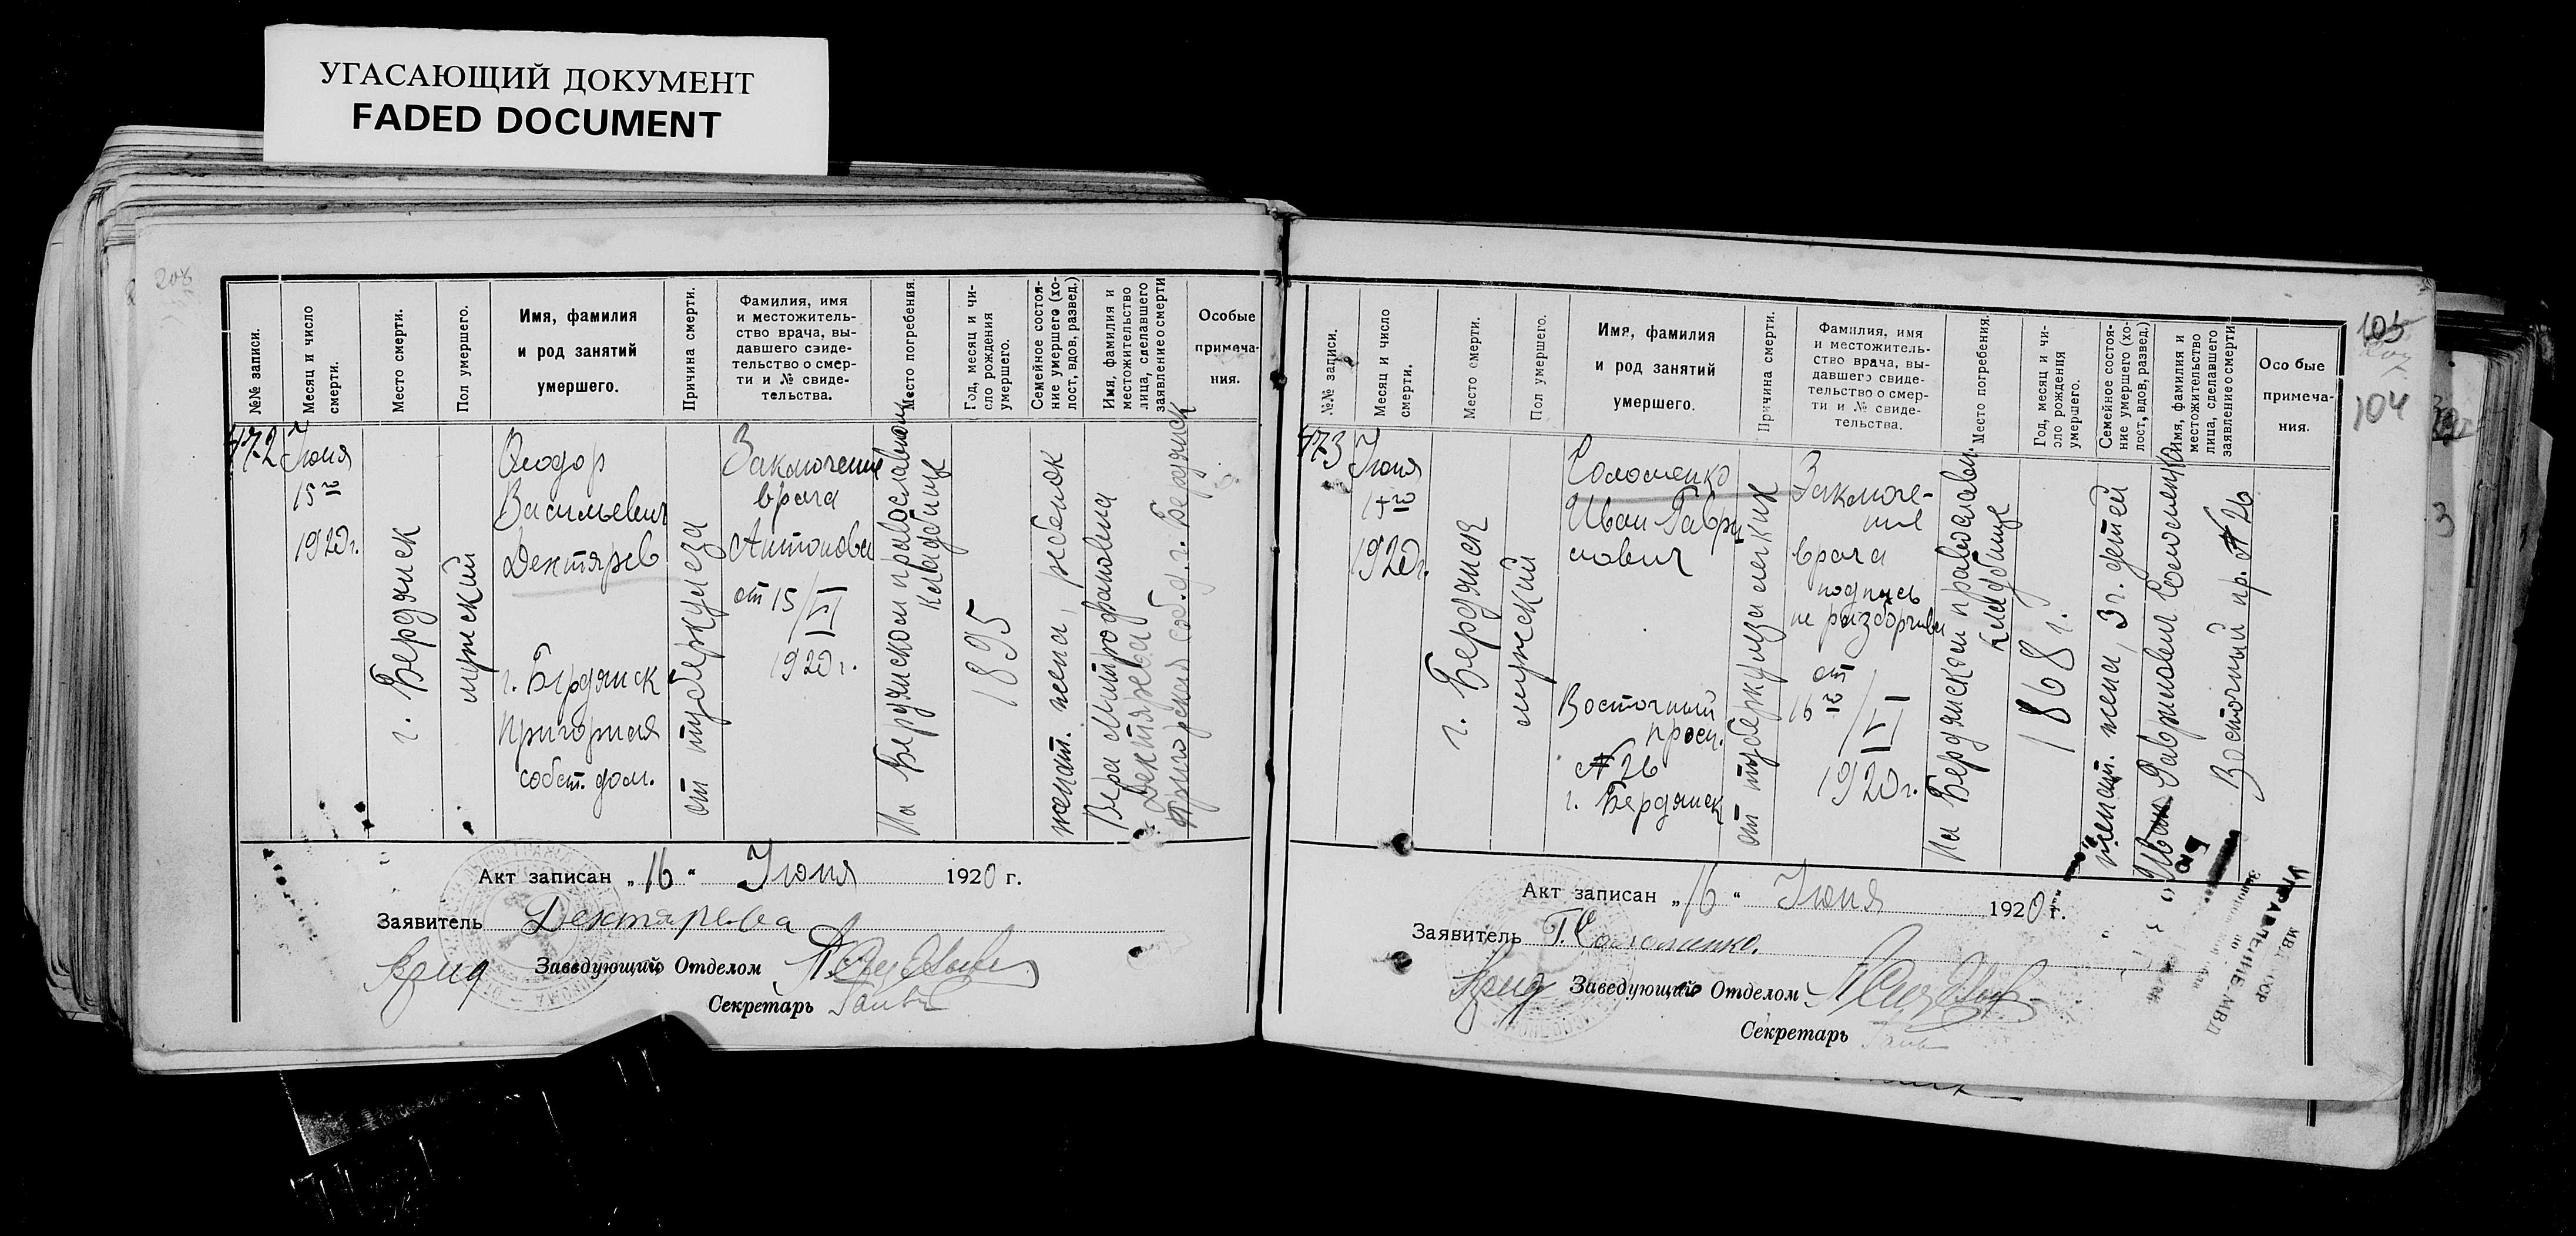 УГАСАЮЩИЙ ДОКУМЕНТ
FADED DOCUMENT
208
№№ записи.
Месяц и число
смерти.
Место смерти.
Пол умершего.
Имя, фамилия
и род занятий
умершего.
Причина смерти.
Фамилия, имя
и местожитель-
ство врача, вы-
давшего свиде-
тельство о смер-
ти и № свиде-
тельства.
Место погребения.
Год, месяц и чи-
сло рождения
умершего.
Семейное состоя-
ние умершего (хо-
лост, вдов, развед.)
Имя, фамилия и
местожительство
лица, сделавшего
заявление о смерти
Особые
примеча-
ния.
472
Июня
15го
1920г.
г. Бердянск
мужский
Феодор
Васильевич
Дехтярев
г. Бердянск
Пригорная
собст. дом.
от туберкулеза
Заключение
врача
Антонова
от 15/VI
1920г.
На Бердянском православном
кладбище
1895
женат. жена, ребенок
Вера Митрофановна
Дехтярева
соб. д. г. Бердянск
Акт записан „16“ Июня 1920 г.
Заявитель Дехтярева
Заведующий Отделом
Секретарь
105
104
№№ записи.
Месяц и число
смерти.
Место смерти.
Пол умершего.
Имя, фамилия
и род занятий
умершего.
Причина смерти.
Фамилия, имя
и местожитель-
ство врача, вы-
давшего свиде-
тельство о смер-
ти и № свиде-
тельства.
Место погребения.
Год, месяц и чи-
сло рождения
умершего.
Семейное состоя-
ние умершего (хо-
лост, вдов, развед.)
Имя, фамилия и
местожительство
лица, сделавшего
заявление о смерти
Особые
примеча-
ния.
473
Июня
15го
1920г.
г. Бердянск
мужский
Соломенко
Иван Гаври
лович
Восточный
просп.
№ 26
г. Бердянск
от туберкулеза легких
Заключе-
ние
врача
подпись
не разборчива
от
16го/VI
1920г.
На Бердянском православн.
кладбище
1868 г.
женат. жена, 3г. детей
Гаврилович Соломенко
Восточный пр. № 26
Акт записан „16“ Июня 1920 г.
Заявитель Г. Соломенко.
Заведующий Отделом
Секретарь
УПРАВЛЕНИЕ МВД